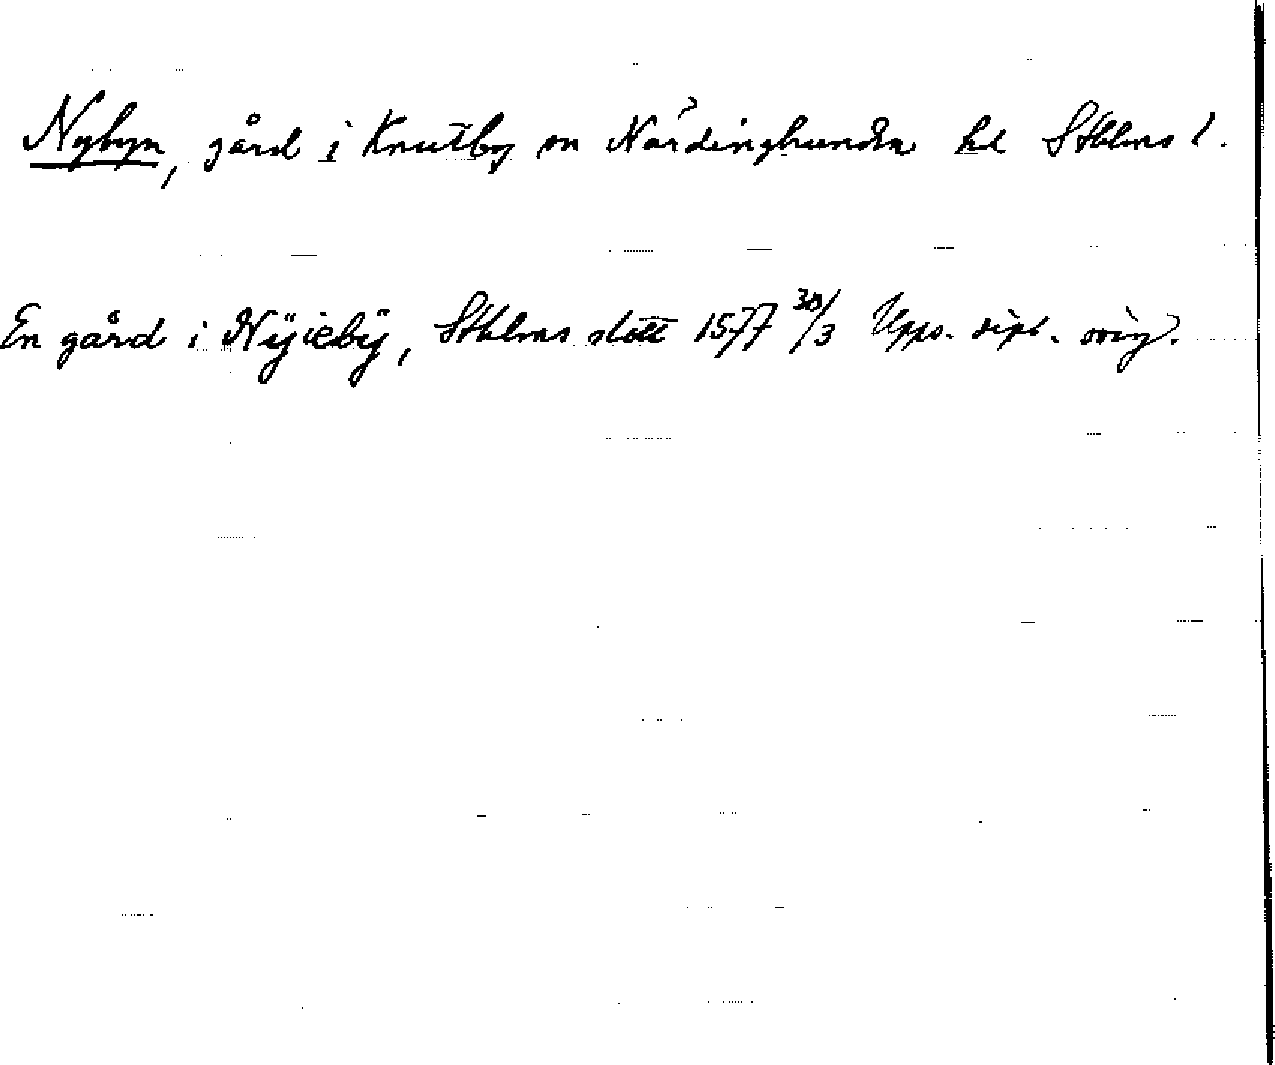 Nybyn, gård i Knutby sn Närdinghundra hd Sthlms l.
En gård i Nÿiebÿ, Sthlms slott 1577 30/3 Upps. dipl. orig.